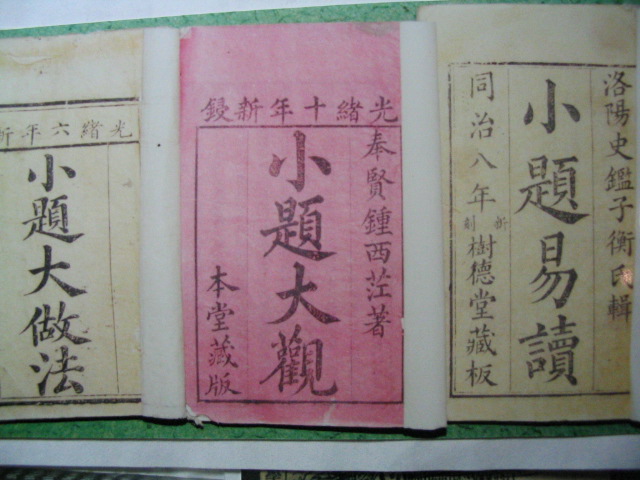 洛陽史鑑子衡氏輯
小題易讀
同治八年新刻樹德堂藏板
光緒十年新鋟
奉賢鍾西茳著
小題大觀
本堂藏版
光緒六年新
小題大做法